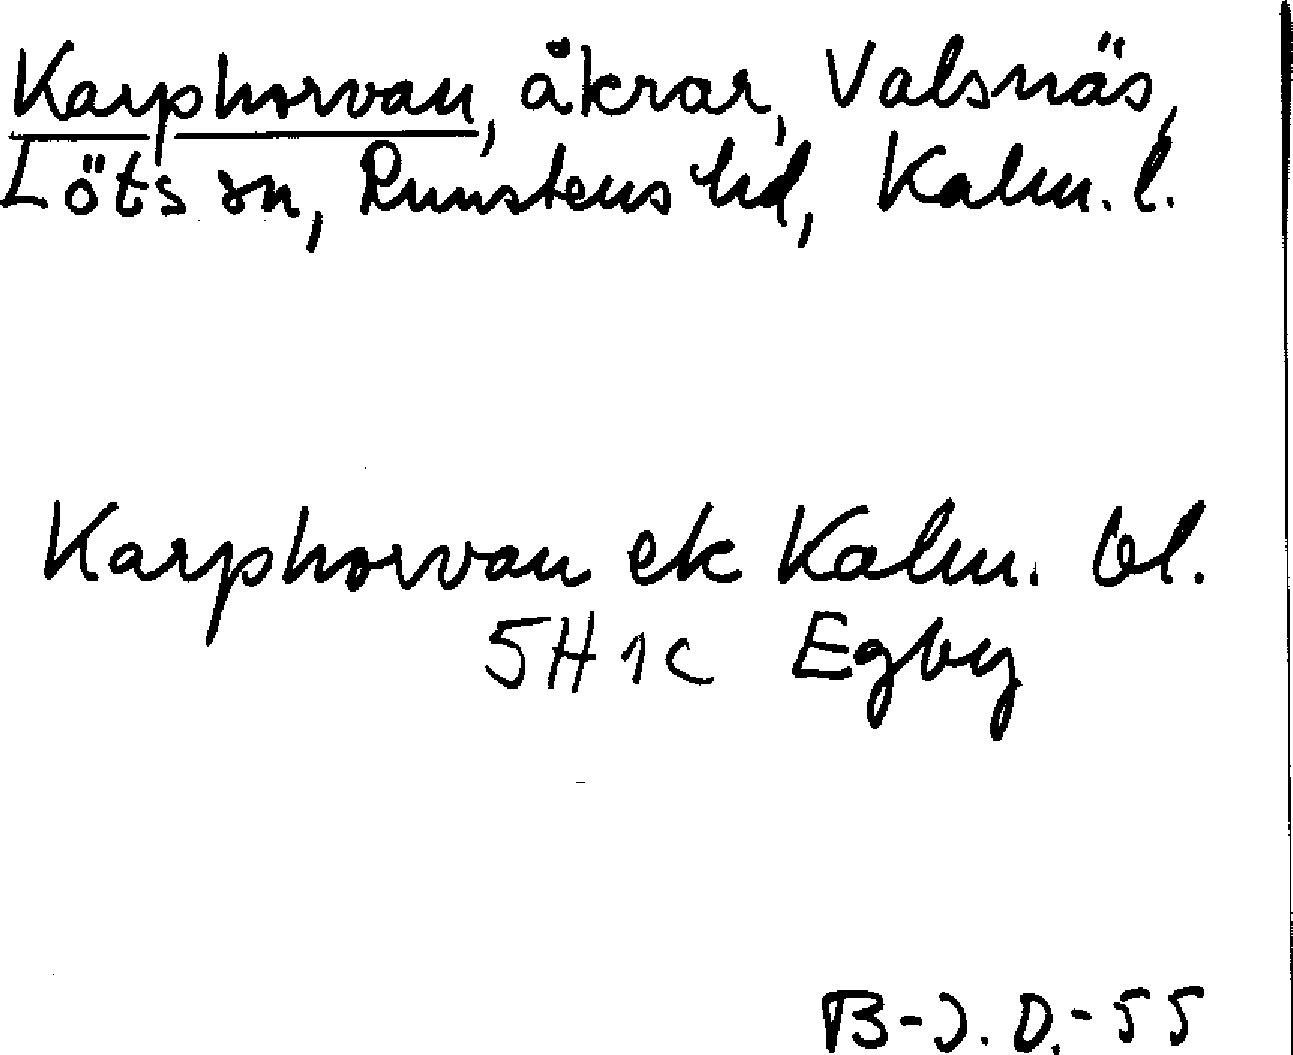 Karphorvan, åkrar, Valsnäs,
Löts sn, Runstens hd, Kalm. l.
Karphorvan ek Kalm. bl.
5H 1c Egby
B-J. D.-55